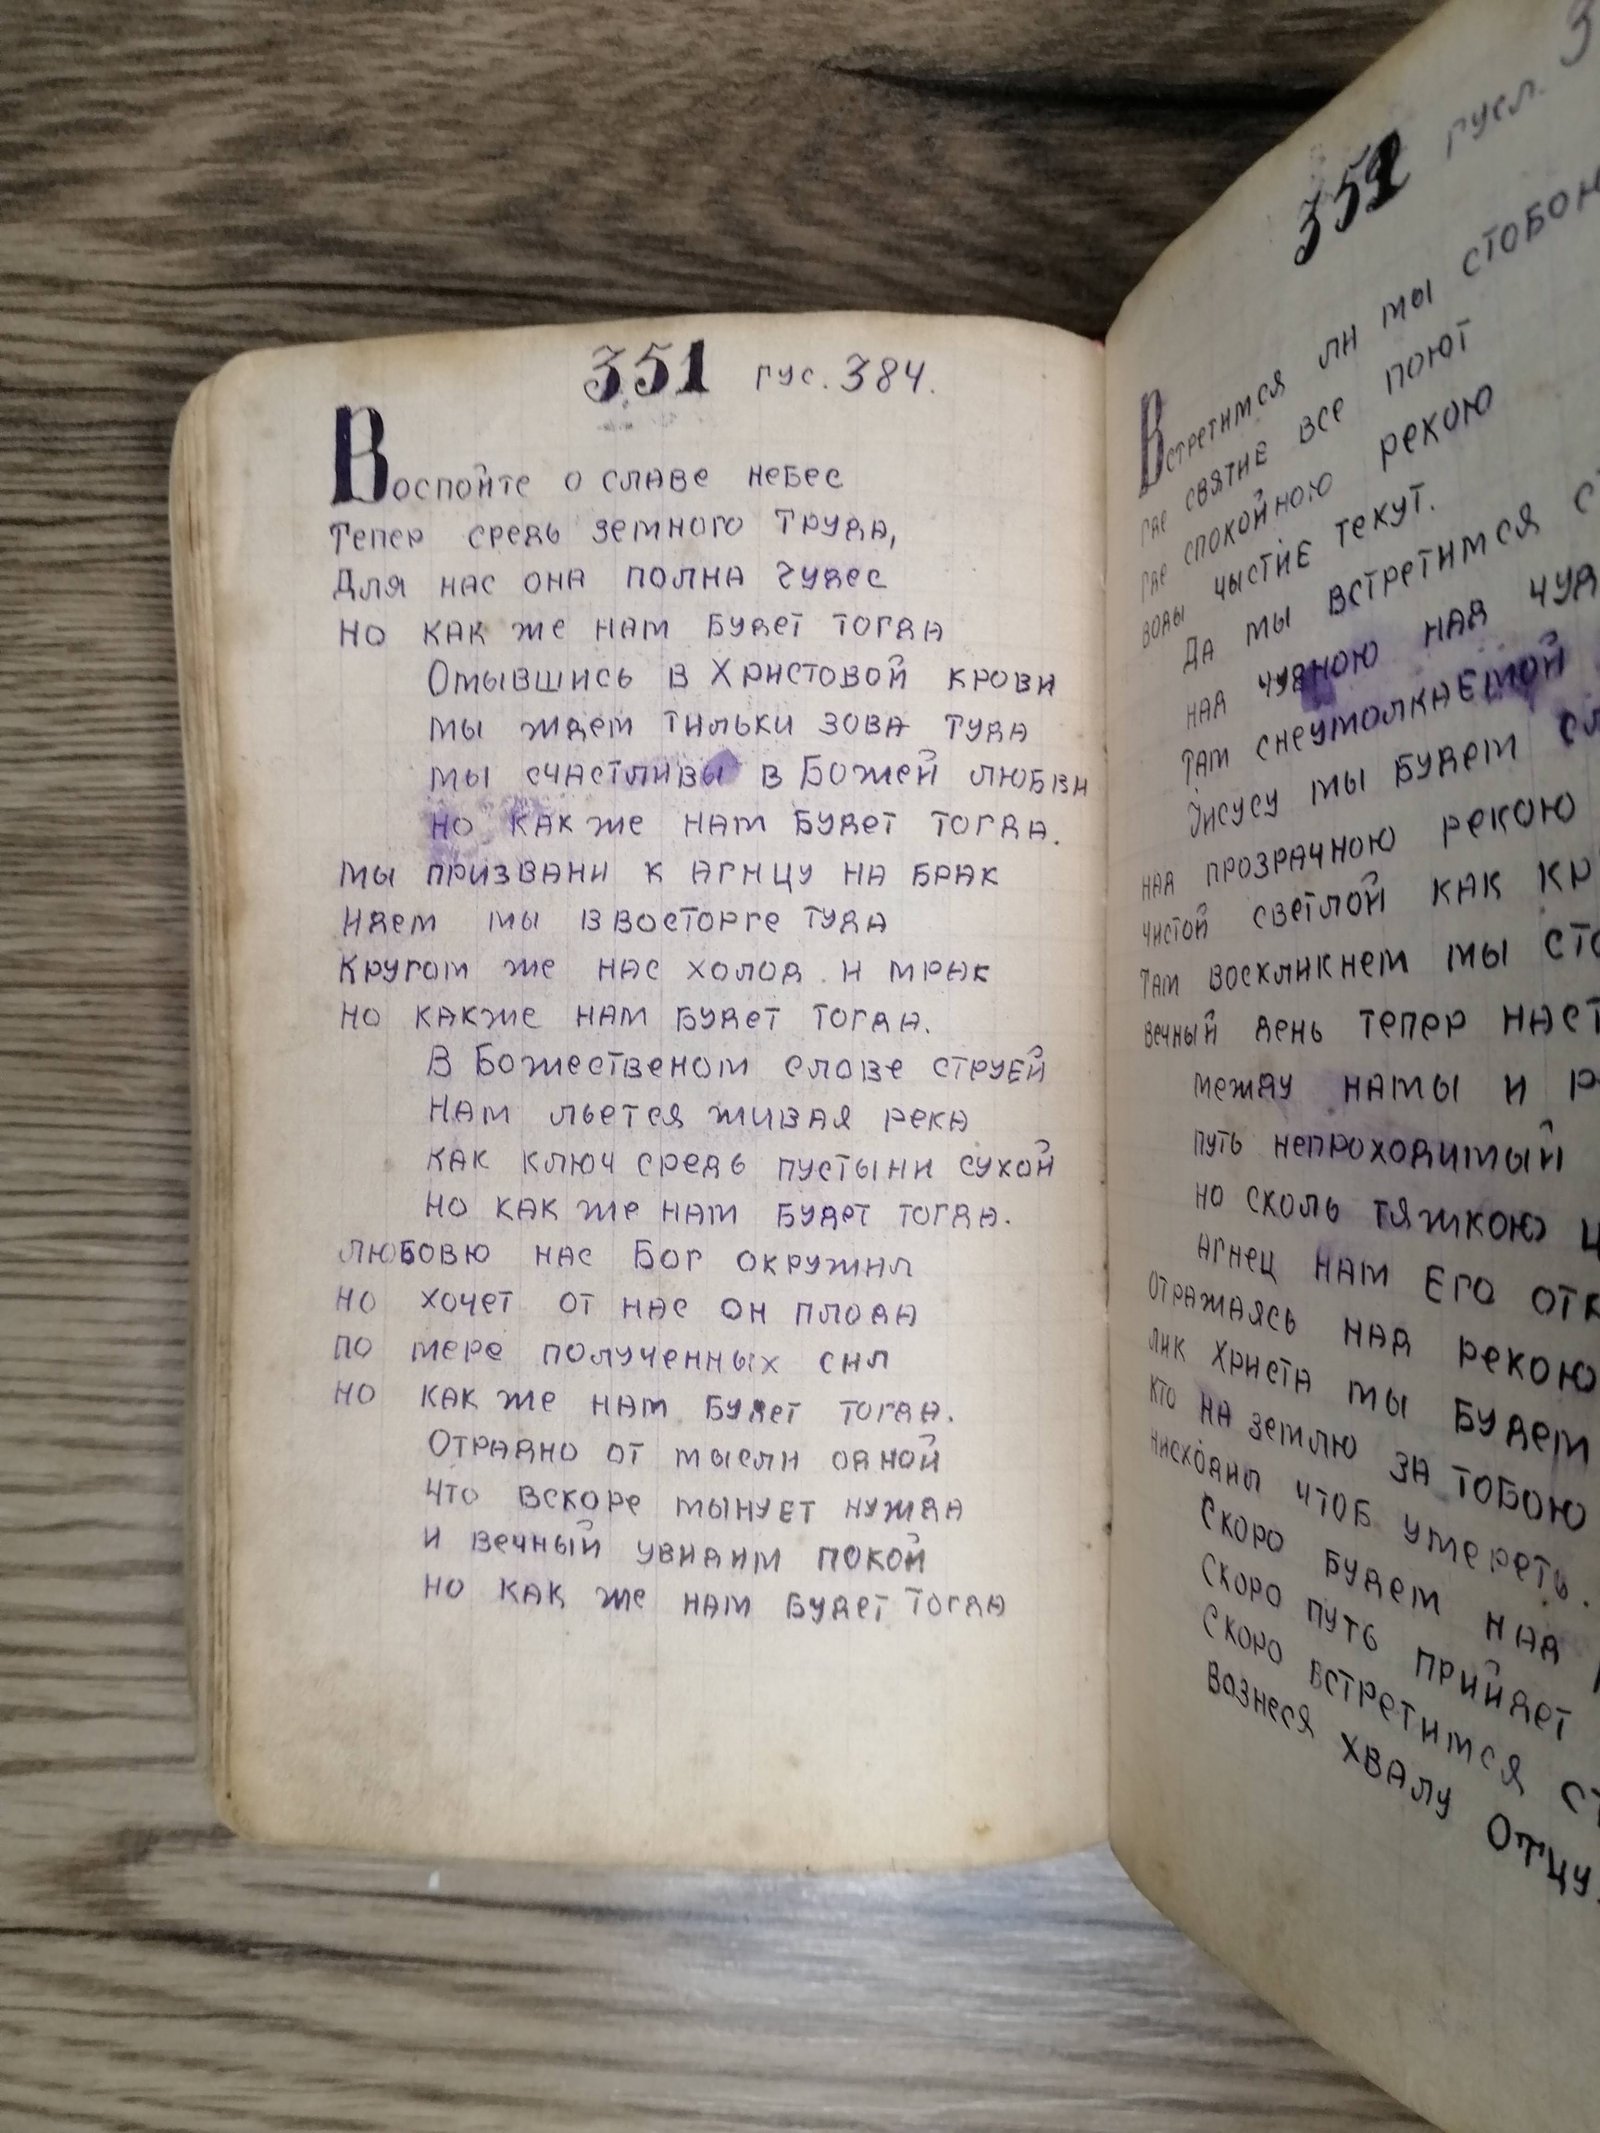 351 гус. 384.
Воспойте о славе небес
Тепер средь земного труда,
Для нас она полна чудес
но как же нам будет тогда
Омывшись в Христовой крови
мы ждем тильки зова туда
мы счастливы в Божей любви
но как же нам будет тогда.
мы призвани к агнцу на брак
идем мы в восторге туда
кругом же нас холод и мрак
но какже нам будет тогда.
В Божественом слове струей
нам льется живая река
как ключ средь пустыни сухой
но как же нам будет тогда.
любовю нас Бог окружил
но хочет от нас он плода
по мере полученных сил
но как же нам будет тогда.
Отрадно от мысли одной
что вскоре мынует нужда
и вечный увидим покой
но как же нам будет тогда
352 гусл. 3
Встретимся ли мы стобой
где святие все поют
где спокойною рекою
воды чыстие текут.
Да мы встретимся
над чудною над
там снеумолкаемой
Іисусу мы будем
над прозрачною рекою
чистой светлой как
там воскликнем мы
вечный день тепер
между намы и
путь непроходимый
но сколь тяжкою
агнец нам Его
отражаясь над рекою
лик Христа мы будем
кто на землю за тобою
нисходил чтоб умереть.
Скоро будем над
скоро путь прийдет
скоро встретимся
вознеся хвалу отцу.